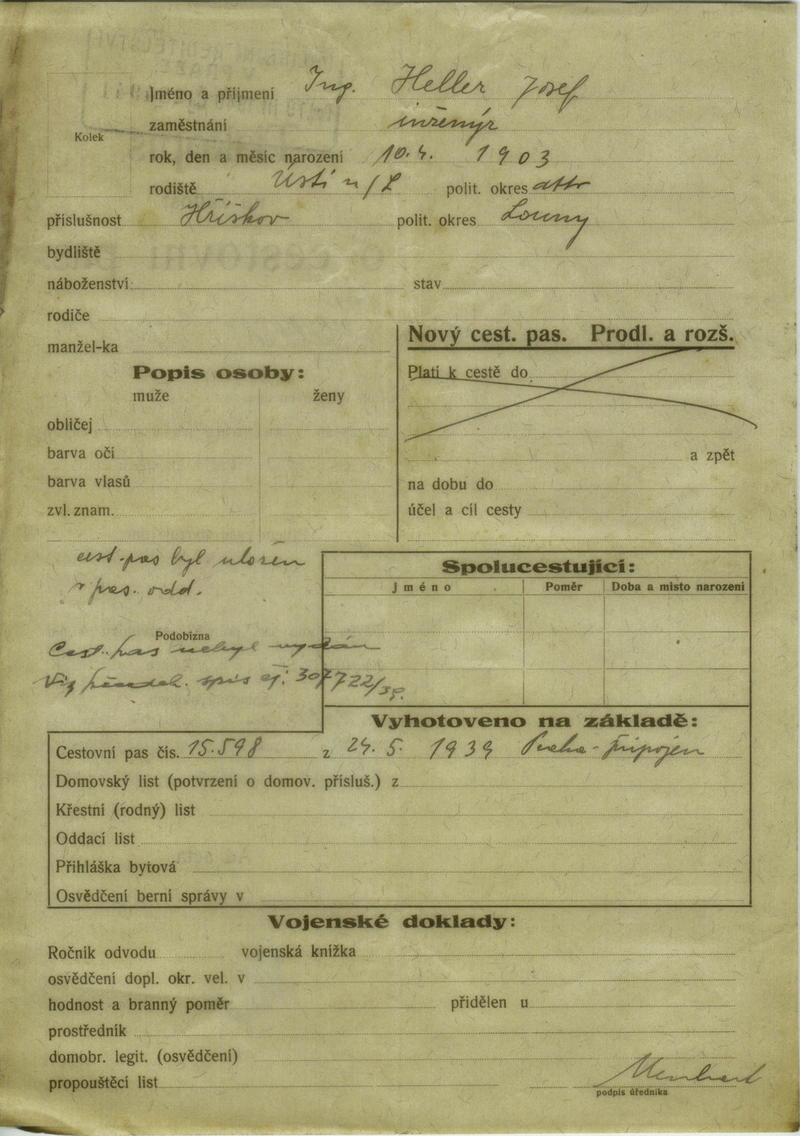 Jméno a příjmení Ing. Heller Josef
zaměstnání inženýr
Kolek
rok, den a měsíc narození 10.4. 1903
rodiště Ústí n/L polit. okres
příslušnost Hříškov polit. okres Louny
bydliště
náboženství stav
rodiče
manžel-ka
Nový cest. pas. Prodl. a rozš.
Popis osoby:
muže ženy
obličej
barva očí
barva vlasů
zvl. znam.
Platí k cestě do
a zpět
na dobu do
účel a cíl cesty
cest. pas byl uložen
v pas. odd.
Podobizna
Cest. pas nebyl vydán
Viz spis čj. 307722/39.
Spolucestující:
Jméno Poměr Doba a místo narození
Vyhotoveno na základě:
Cestovní pas čís. 15.598 z 24. 5. 1939 Praha - připojen
Domovský list (potvrzení o domov. přísluš.) z
Křestní (rodný) list
Oddací list
Přihláška bytová
Osvědčení berní správy v
Vojenské doklady:
Ročník odvodu vojenská knížka
osvědčení dopl. okr. vel. v
hodnost a branný poměr přidělen u
prostředník
domobr. legit. (osvědčení)
propouštěcí list
podpis úředníka